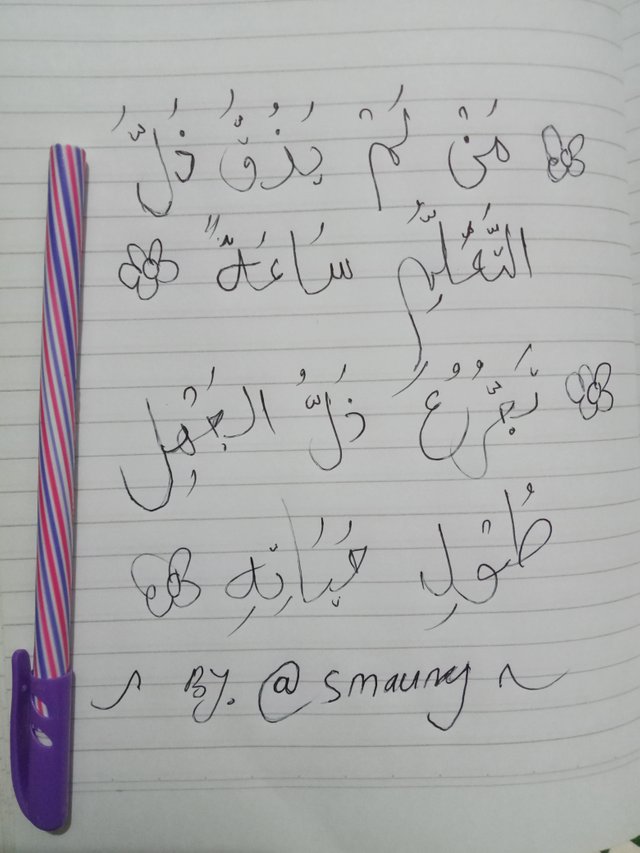 مَنْ لَمْ يَذُقْ ذُلَّ
التَّعَلُّمِ سَاعَةً
تَجَرَّعَ ذُلَّ الجَهْلِ
طُوْلِ حَيَاتِهِ
By. @smauny